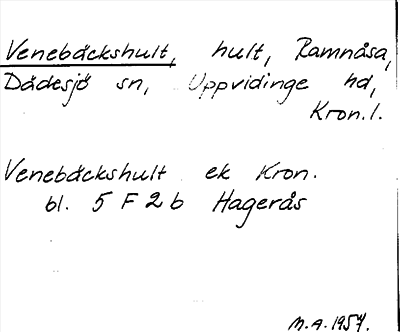 Venebäckshult, hult, Ramnåsa,
Dädesjö sn, Uppvidinge hd,
Kron.l.
Venebäckshult ek Kron.
bl. 5 F 2 b Hagerås
M.A. 1957.